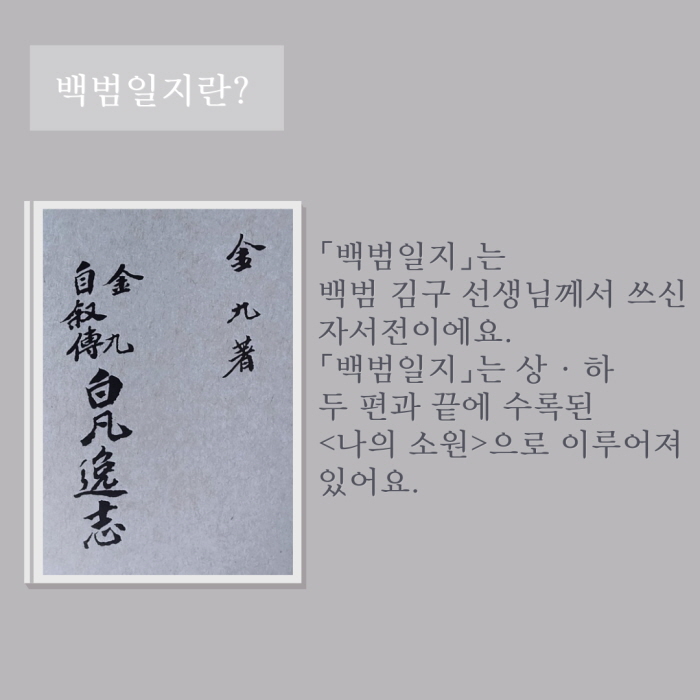 백범일지란?
金九著
金九
自叙傳
白凡逸志
「백범일지」는
백범 김구 선생님께서 쓰신
자서전이에요.
「백범일지」는 상 · 하
두 편과 끝에 수록된
<나의 소원>으로 이루어져
있어요.